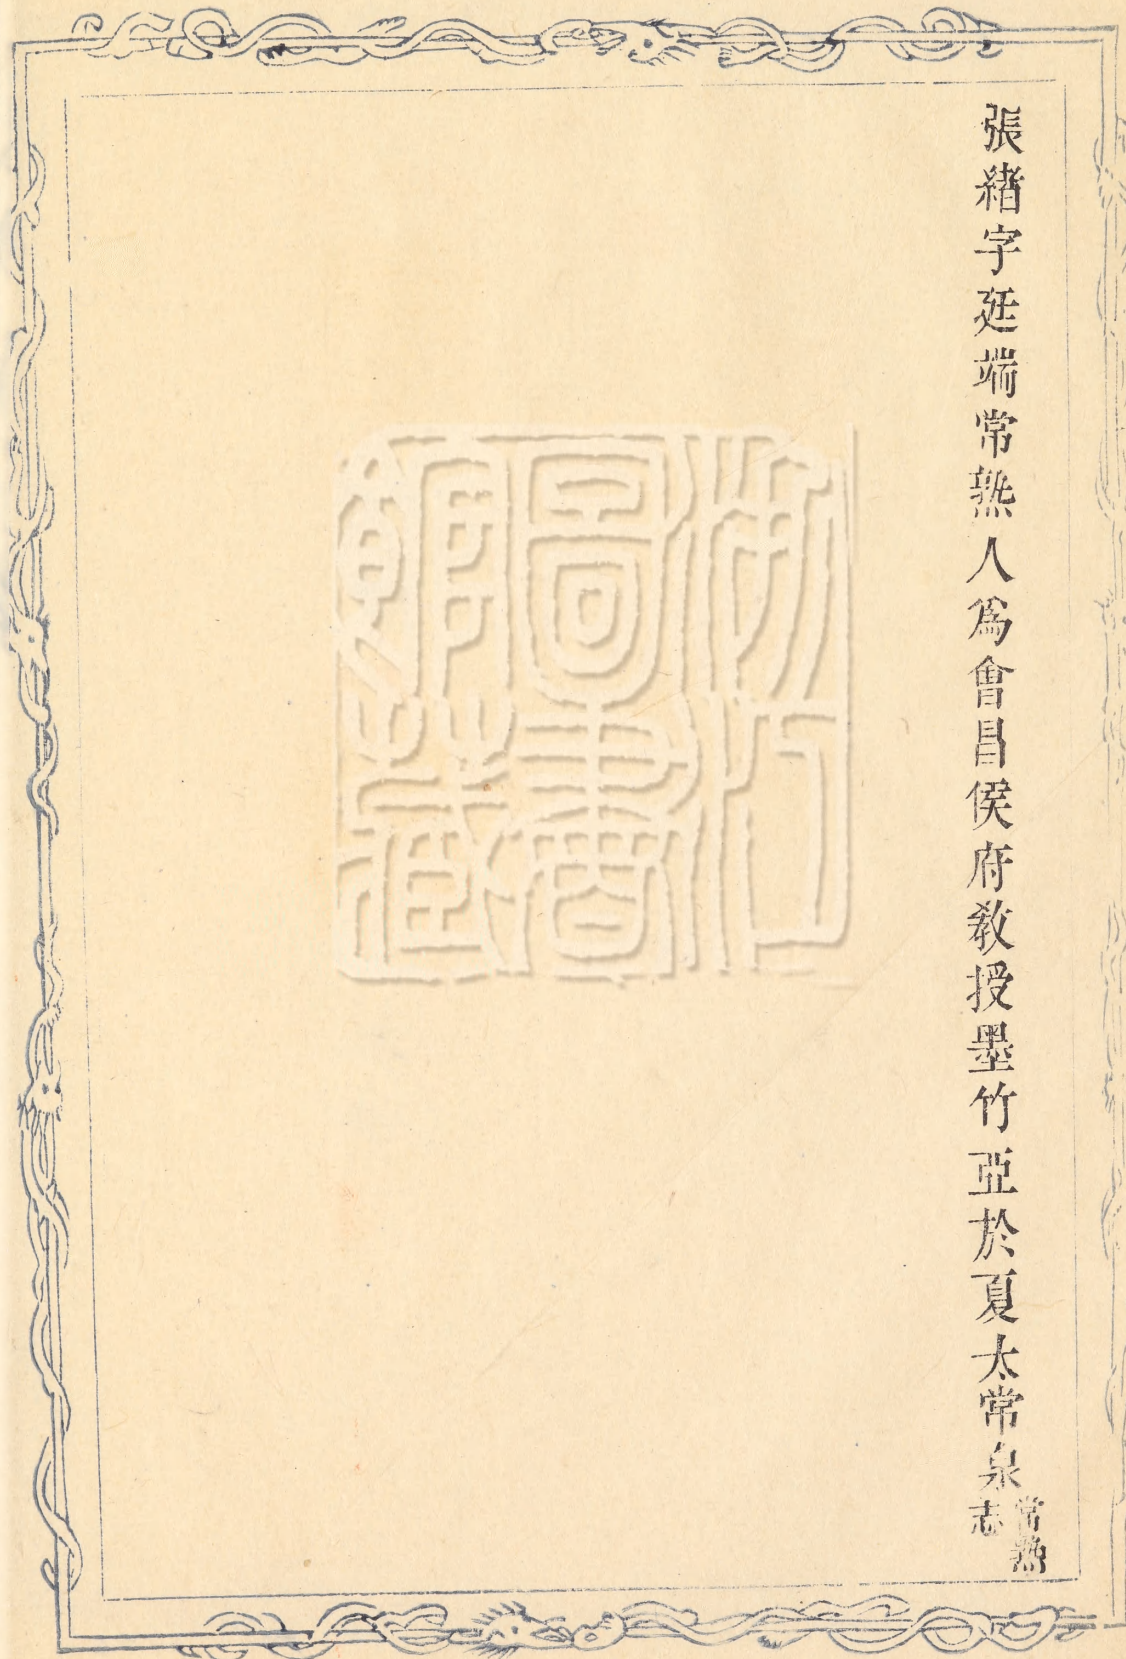 張緒字廷端常熟人爲會昌侯府敎授墨竹亞於夏太常㫤
常熟
志
浙江
圖書
館藏